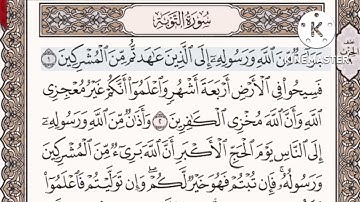 سُورَةُ التَّوْبَةِ
مِّنَ اللَّهِ وَرَسُولِهِ إِلَى الَّذِينَ عَاهَدتُّم مِّنَ الْمُشْرِكِينَ ١
فَسِيحُوا فِي الْأَرْضِ أَرْبَعَةَ أَشْهُرٍ وَاعْلَمُوا أَنَّكُمْ غَيْرُ مُعْجِزِي
اللَّهِ وَأَنَّ اللَّهَ مُخْزِي الْكَافِرِينَ ٢ وَأَذَانٌ مِّنَ اللَّهِ وَرَسُولِهِ
إِلَى النَّاسِ يَوْمَ الْحَجِّ الْأَكْبَرِ أَنَّ اللَّهَ بَرِيءٌ مِّنَ الْمُشْرِكِينَ
وَرَسُولُهُ فَإِن تُبْتُمْ فَهُوَ خَيْرٌ لَّكُمْ وَإِن تَوَلَّيْتُمْ فَاعْلَمُوا
K